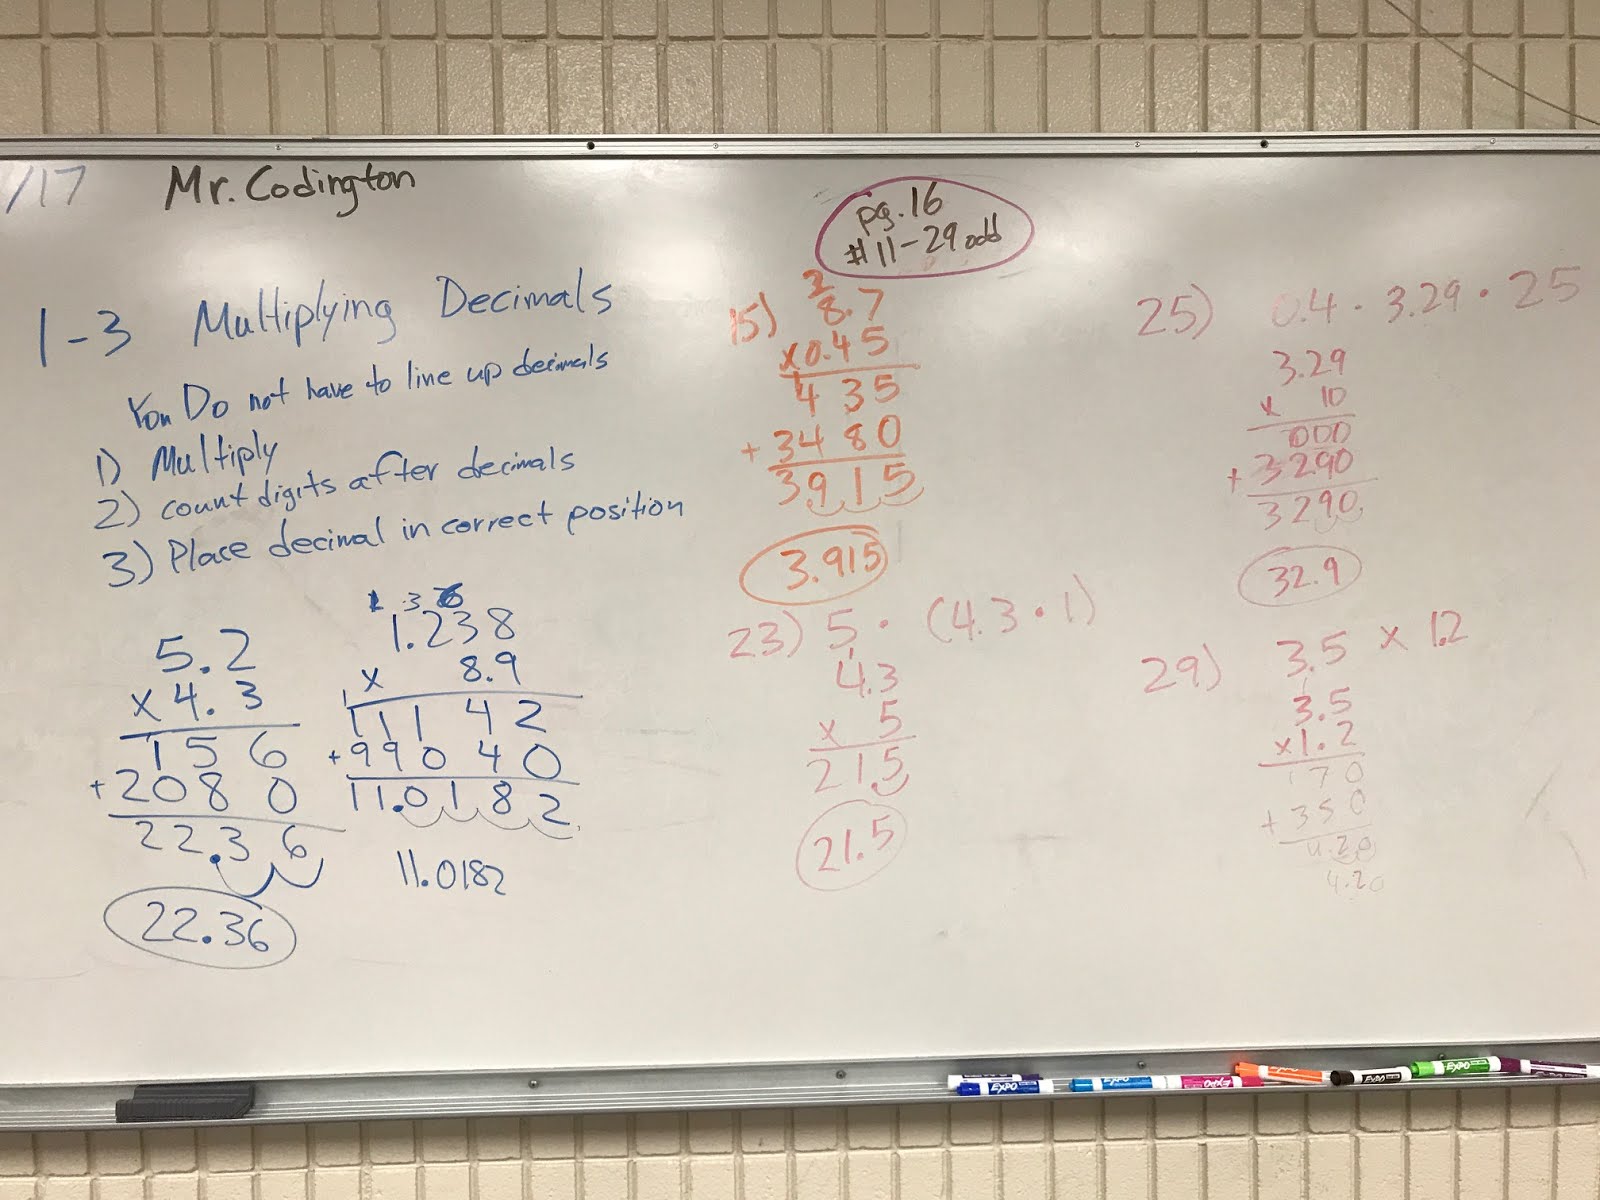 /17
Mr. Codington
1-3 Multiplying Decimals
You Do not have to line up decimals
1) Multiply
2) count digits after decimals
3) Place decimal in correct position
5.2
x 4.3
156
+2080
22.36
22.36
3
1.238
x 8.9
1
11142
+99040
11.0182
11.0182
pg. 16
#11-29 odd
15)
8.7
x0.45
435
+3480
3915
3.915
23) 5 · (4.3 · 1)
1
4.3
x 5
21.5
21.5
25) 0.4 · 3.29 · 25
3.29
x 10
000
+3290
3290
32.9
29) 3.5 x 1.2
1
3.5
x1.2
170
+350
4.20
4.20
EXPO
EXPO
EXPO
EXPO
EXPO